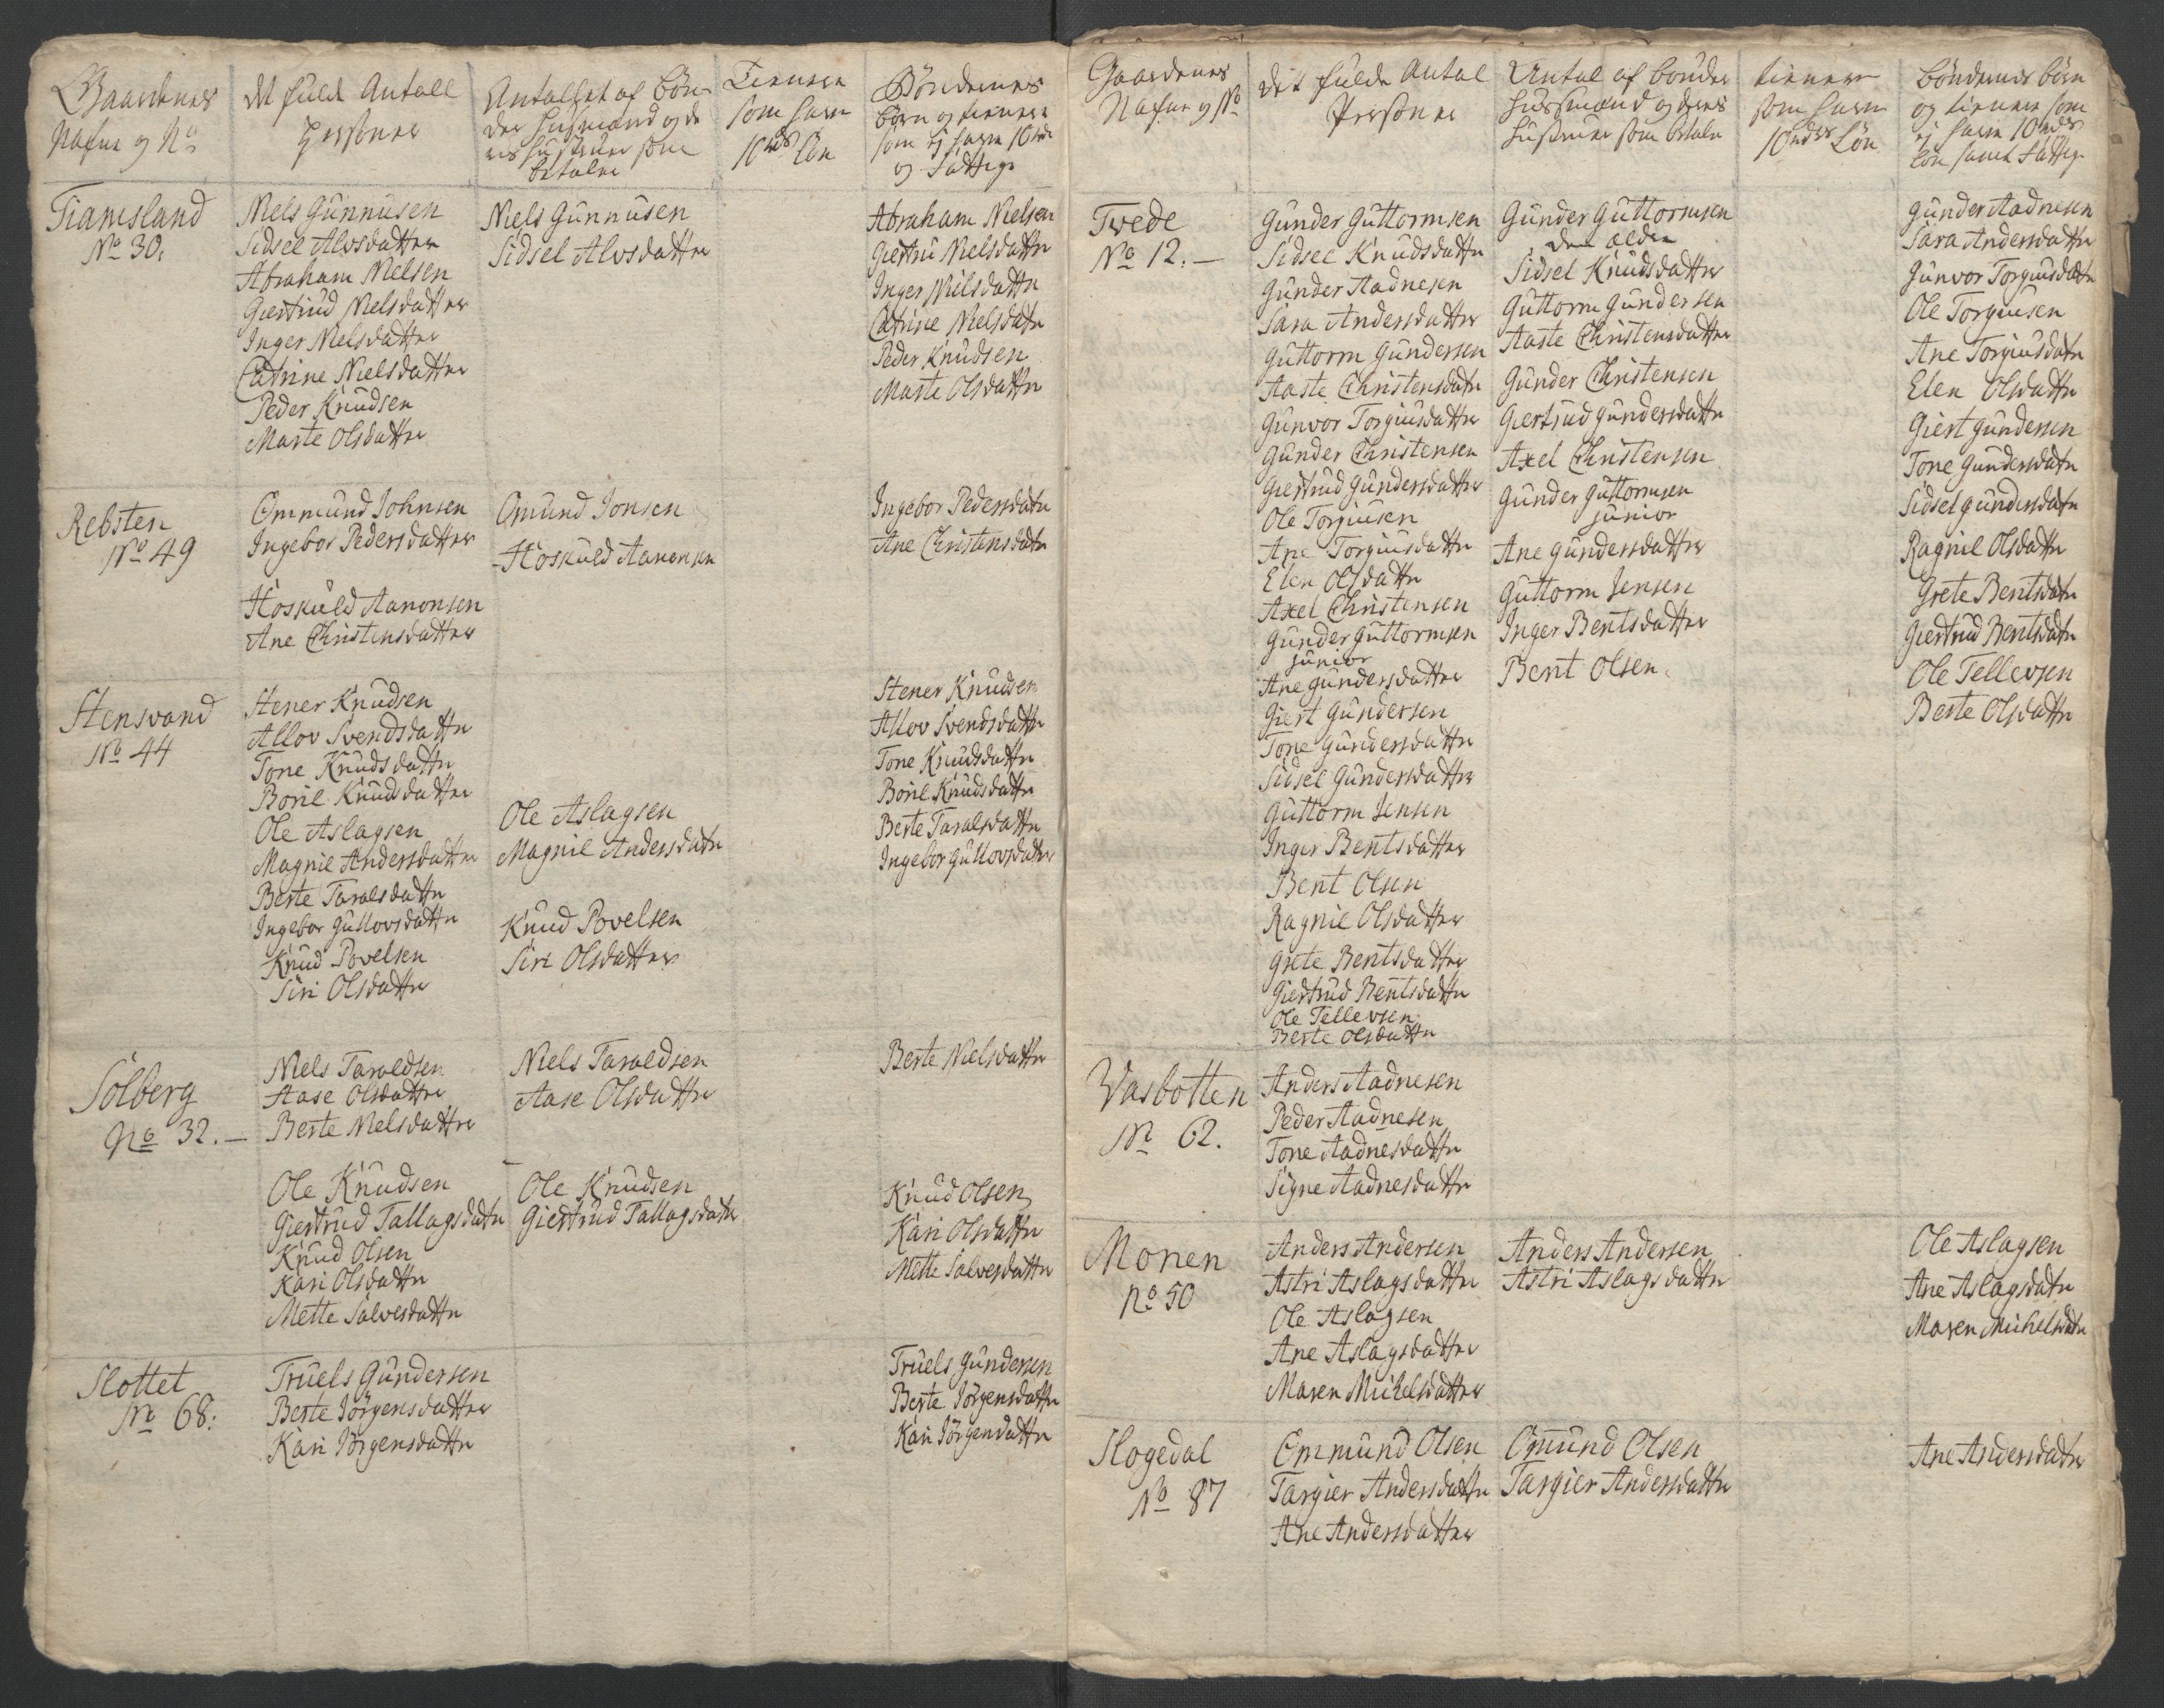 Gaardenes
Nafne og No
det fulde Antall
Personer
Antallet af Bøn-
der Husmænd og de
res Hustruer som
betaler
Tienere
som have
10rdr Løn
Bøndernes
Børn og tienere
som ej have 10rdr
og Fattige
Tiamsland
No 30.
Niels Gunnusen
Sidsel Alvsdatter
Abraham Nielsen
Giertrud Nielsdatter
Inger Nielsdatter
Catrine Nielsdatter
Peder Knudsen
Marte Olsdatter
Niels Gunnusen
Sidsel Alvsdatter
Abraham Nielsen
Giertru Nielsdattr
Inger Nielsdattr
Catrine Nielsdatr
Peder Knudsen
Marte Olsdattr
Rebsten
No 49
Ommund Johnsen
Ingebor Pedersdatter
Hoskuld Aanonsen
Ane Christensdatter
Omund Jonsen
Hoskuld Aanonsen
Ingebor Pedersdatr
Ane Christensdatr
Stensvand
No 44
Stener Knudsen
Allov Svendsdattr
Tone Knudsdattr
Boril Knudsdatter
Ole Aslagsen
Magnil Andersdatter
Berte Taralsdattr
Ingebor Gullovsdattr
Knud Povelsen
Siri Olsdattr
Ole Aslagsen
Magnil Andersdatr
Knud Povelsen
Siri Olsdatter
Stener Knudsen
Allov Svendsdattr
Tone Knudsdattr
Boril Knudsdattr
Berte Taralsdattr
Ingebor Gullovsdatter
Solberg
No 32.
Niels Taraldsen
Aase Olsdatter
Berte Nielsdatter
Ole Knudsen
Giertrud Tallagsdatr
Knud Olsen
Kari Olsdattr
Mette Salvesdattr
Niels Taraldsen
Aase Olsdattr
Ole Knudsen
Giertrud Tallagsdatr
Berte Nielsdattr
Knud Olsen
Kari Olsdattr
Mette Salvesdattr
Slottet
No 68:
Truels Gundersen
Berte Jörgensdatter
Kari Jörgensdattr
Truels Gundersen
Berte Jörgensdattr
Kari Jörgensdattr
Gaardenes
Nafne og No
det fulde Antal
Personer
Antal af bønder
Husmænd og deres
Hustruer som betaler
tienere
som have
10rdrs Løn
bøndernes børn
og tienere som
ej have 10rdrs
Løn samt Fattige
Twede
No 12.
Gunder Guttormsen
Sidsel Knudsdattr
Gunder Aadnesen
Sara Andersdatter
Guttorm Gundersen
Aaste Christensdatr
Gunvor Torgiusdatter
Gunder Christensen
Giertrud Gundersdatter
Ole Torgiusen
Ane Torgiusdattr
Elen Olsdattr
Axel Christensen
Gunder Guttormsen
junior
Ane Gundersdatter
Giert Gundersen
Tone Gundersdattr
Sidsel Gundersdatter
Guttorm Jensen
Inger Bentsdatter
Bent Olsen
Ragnil Olsdatter
Grete Bentsdatter
Giertrud Bentsdattr
Ole Tellevsen
Berte Olsdattr
Gunder Guttormsen
den ælder
Sidsel Knudsdatter
Guttorm Gundersen
Aaste Christensdatter
Gunder Christensen
Giertrud Gundersdattr
Axel Christensen
Gunder Guttormsen
junior
Ane Gundersdatter
Guttorm Jensen
Inger Bentsdatter
Bent Olsen
Gunder Aadnesen
Sara Andersdattr
Gunvor Torgiusdatr
Ole Torgiusen
Ane Torgiusdatr
Elen Olsdattr
Giert Gundersen
Tone Gundersdatr
Sidsel Gundersdatr
Ragnil Olsdattr
Grete Bentsdatr
Giertrud Bentsdatr
Ole Tellevsen
Berte Olsdattr
Vasbotten
No 62.
Anders Aadnesen
Peder Aadnesen
Tone Aadnesdattr
Signe Aadnesdattr
Monen
No 50
Anders Andersen
Astri Aslagsdattr
Ole Aslagsen
Ane Aslagsdatter
Maren Michelsdatter
Anders Andersen
Astri Aslagsdattr
Ole Aslagsen
Ane Aslagsdatr
Maren Michelsdatr
Slogedal
No 87
Ommund Olsen
Targier Andersdattr
Ane Andersdatter
Omund Olsen
Targier Andersdattr
Ane Andersdatter